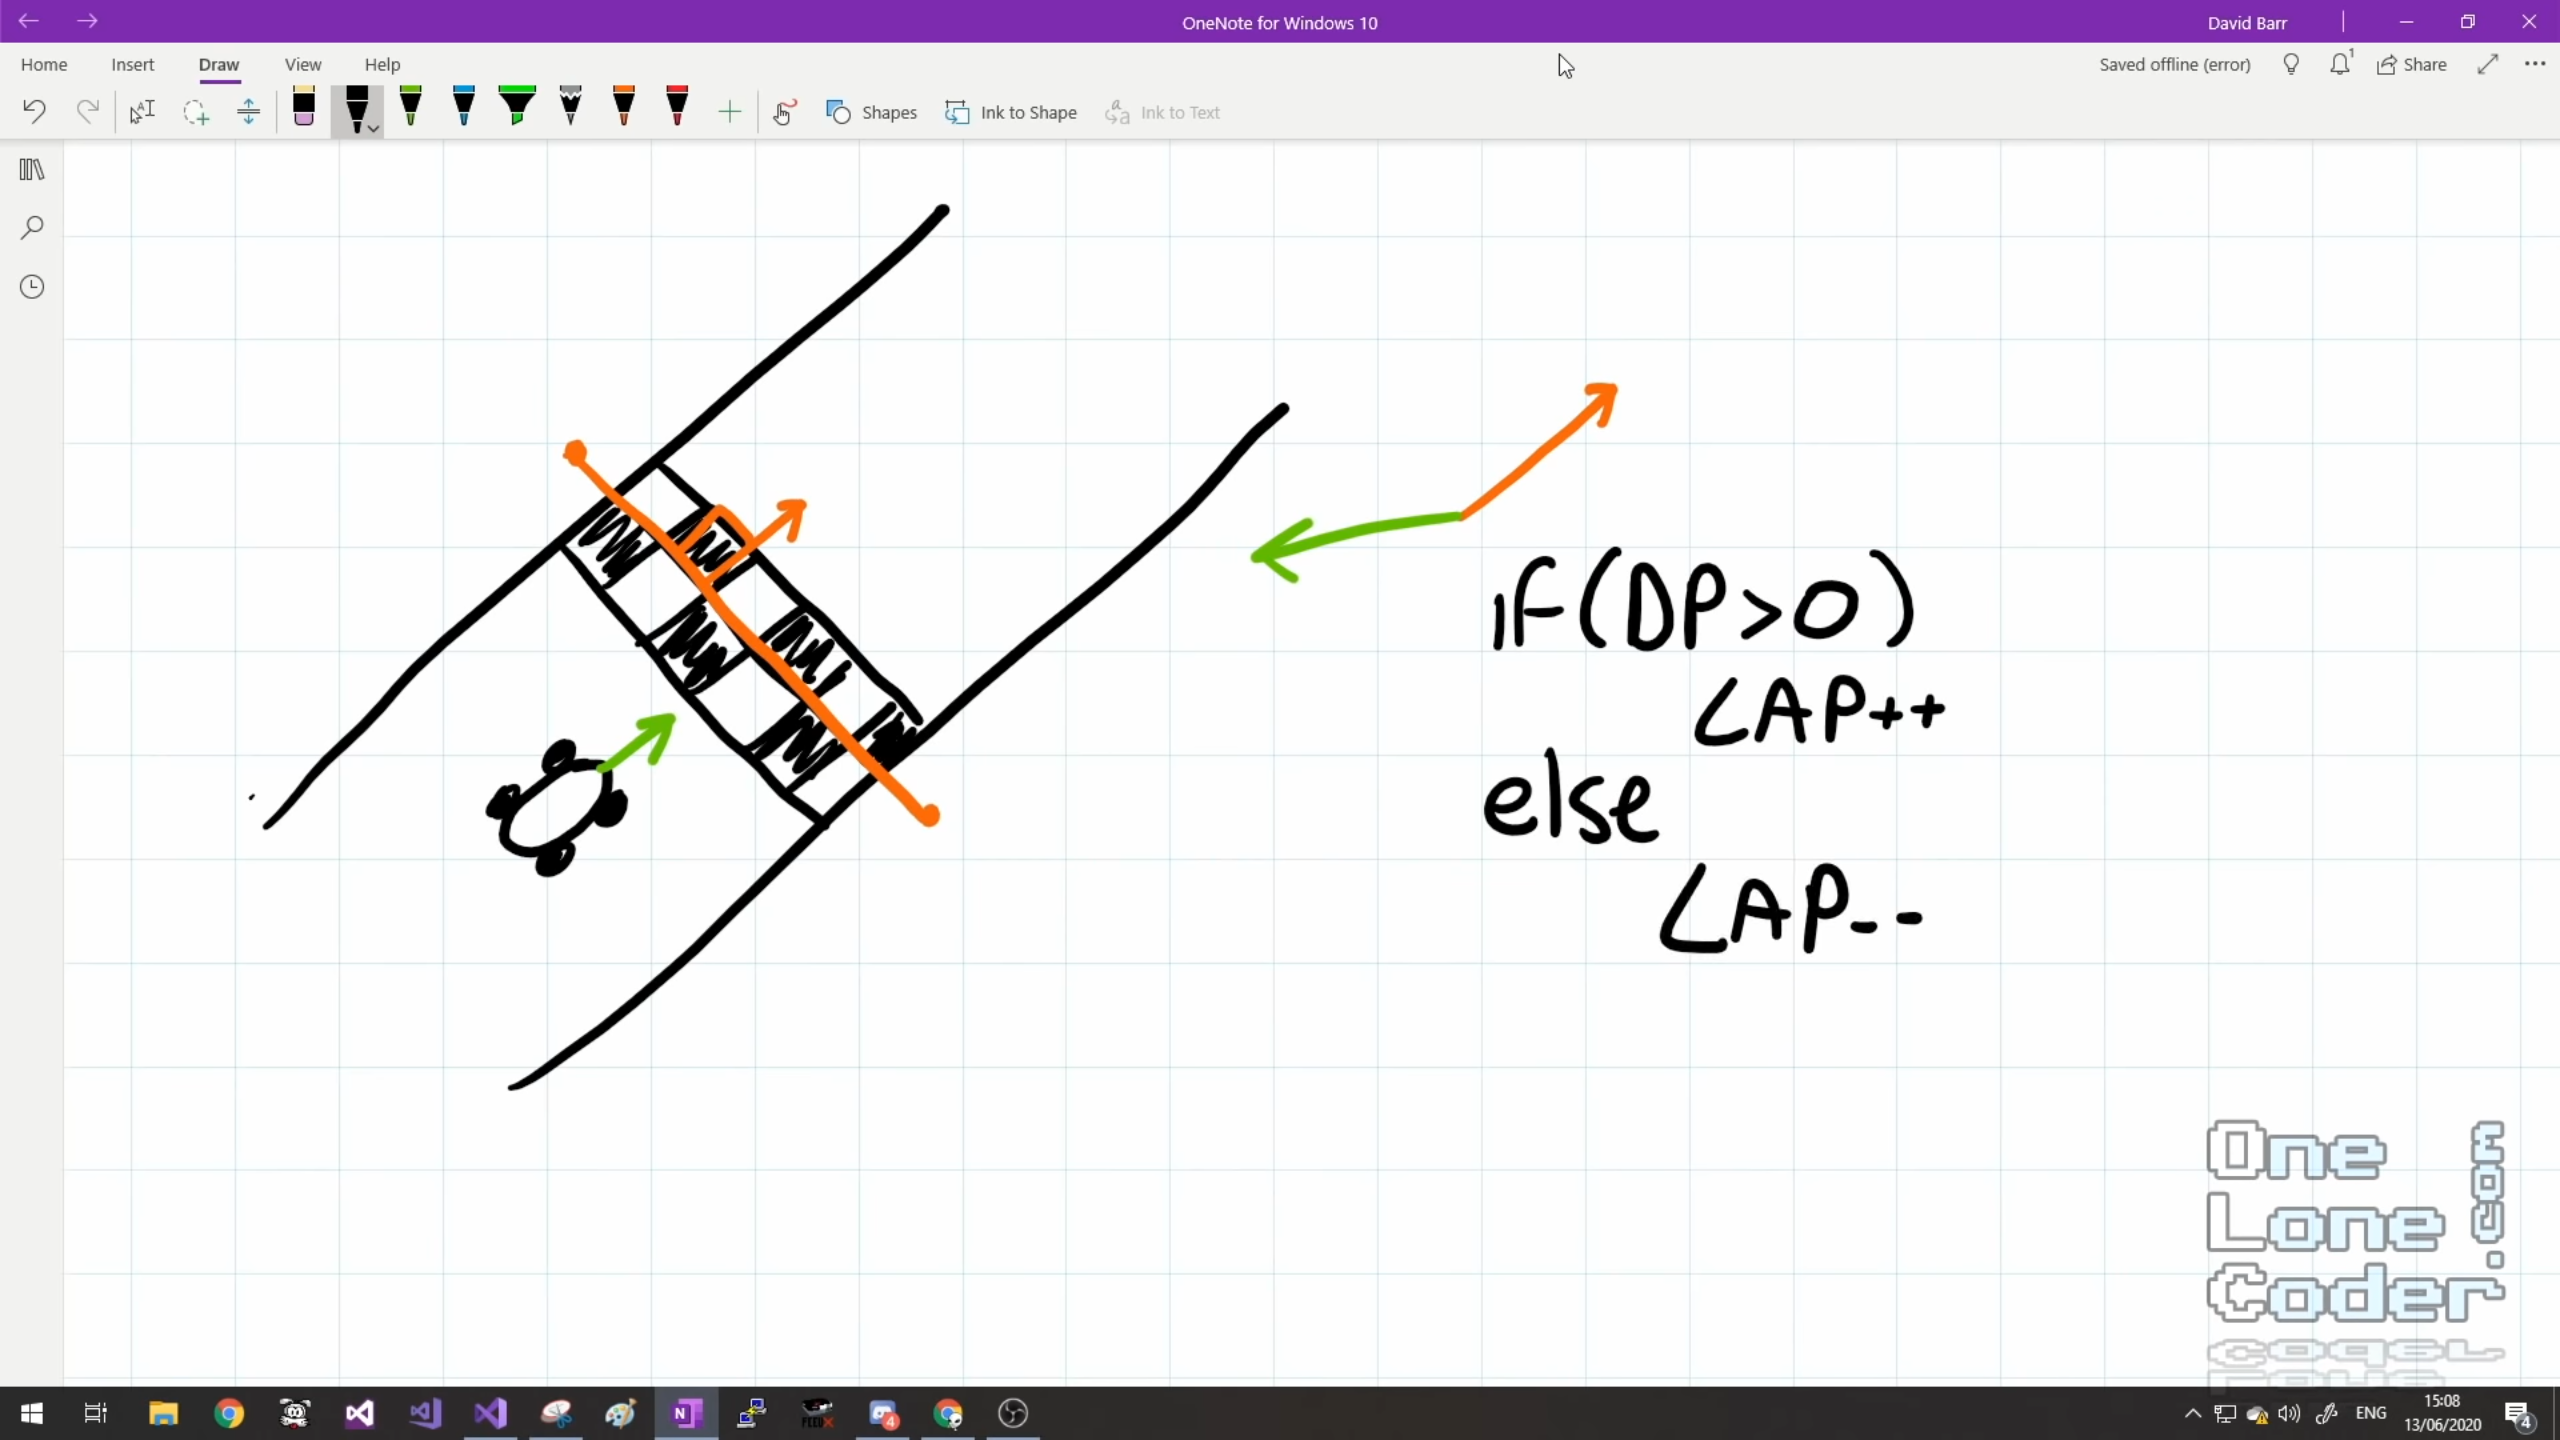 OneNote for Windows 10
David Barr
Home Insert Draw View Help
Saved offline (error)
1
Share
Shapes
Ink to Shape
Ink to Text
if(DP>0)
LAP++
else
LAP--
One
Lone
Coder
.com
N
4
ENG
15:08
13/06/2020
4